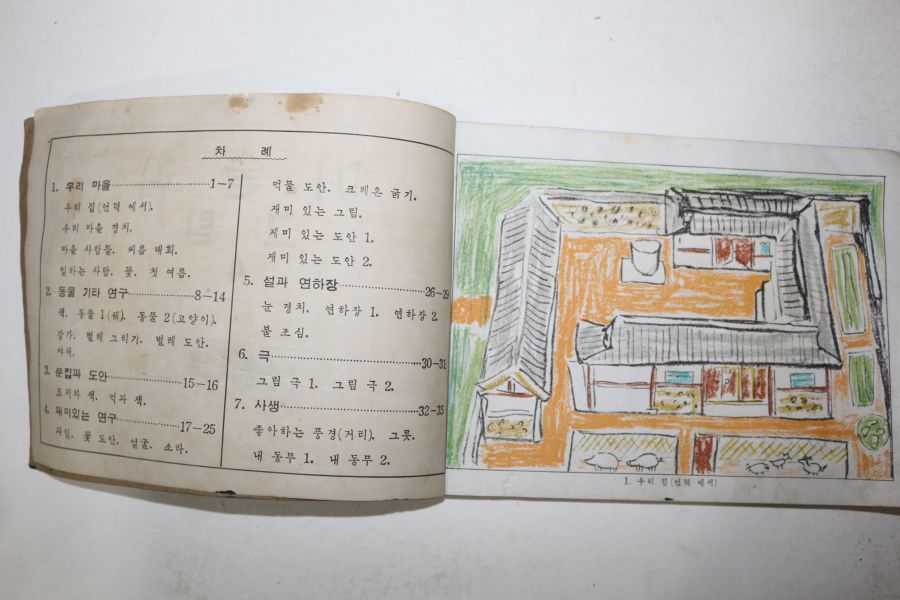 차 례
1. 우리 마을 1—7
우리 집(언덕 에서).
우리 마을 경치.
마을 사람들. 씨름 대회.
일하는 사람. 꽃. 첫 여름.
2. 동물 기타 연구 8—14
색. 동물 1(퀘). 동물 2(고양이).
장가. 벌레 그리기. 벌레 도안.
야채.
3. 문집과 도안 15—16
표지와 색. 먹과 색.
4. 재미있는 연구 17—25
과일. 꽃 도안. 얼굴. 소라.
먹물 도안. 크레온 긁기.
재미 있는 그림.
재미 있는 도안 1.
재미 있는 도안 2.
5. 설과 연하장 26—29
눈 경치. 연하장 1. 연하장 2.
불 조심.
6. 극 30—31
그림 극 1. 그림 극 2.
7. 사생 32—35
좋아하는 풍경(거리). 그릇.
내 동무 1. 내 동무 2.
1. 우리 집(언덕 에서)